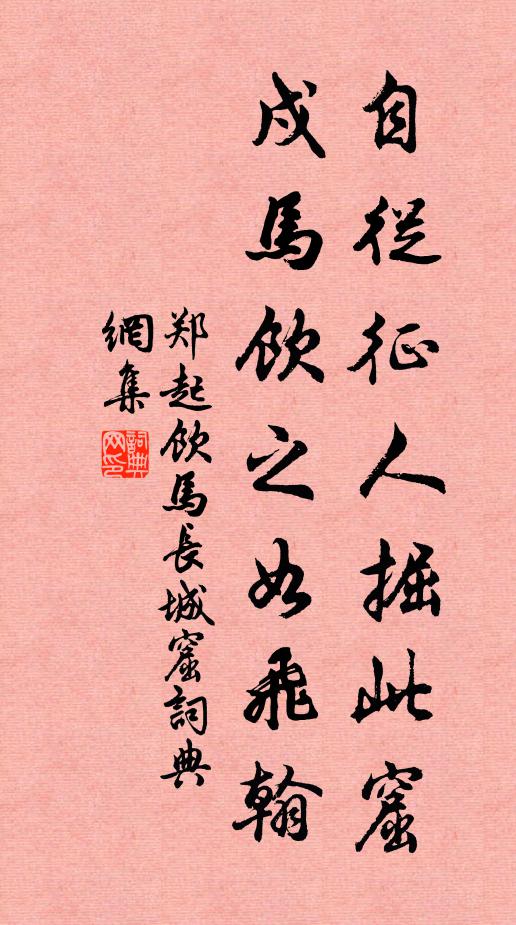 自從征人掘此窟
戍馬飲之如飛翰
郑起飲馬長城窟詞典
網集
詞典網印